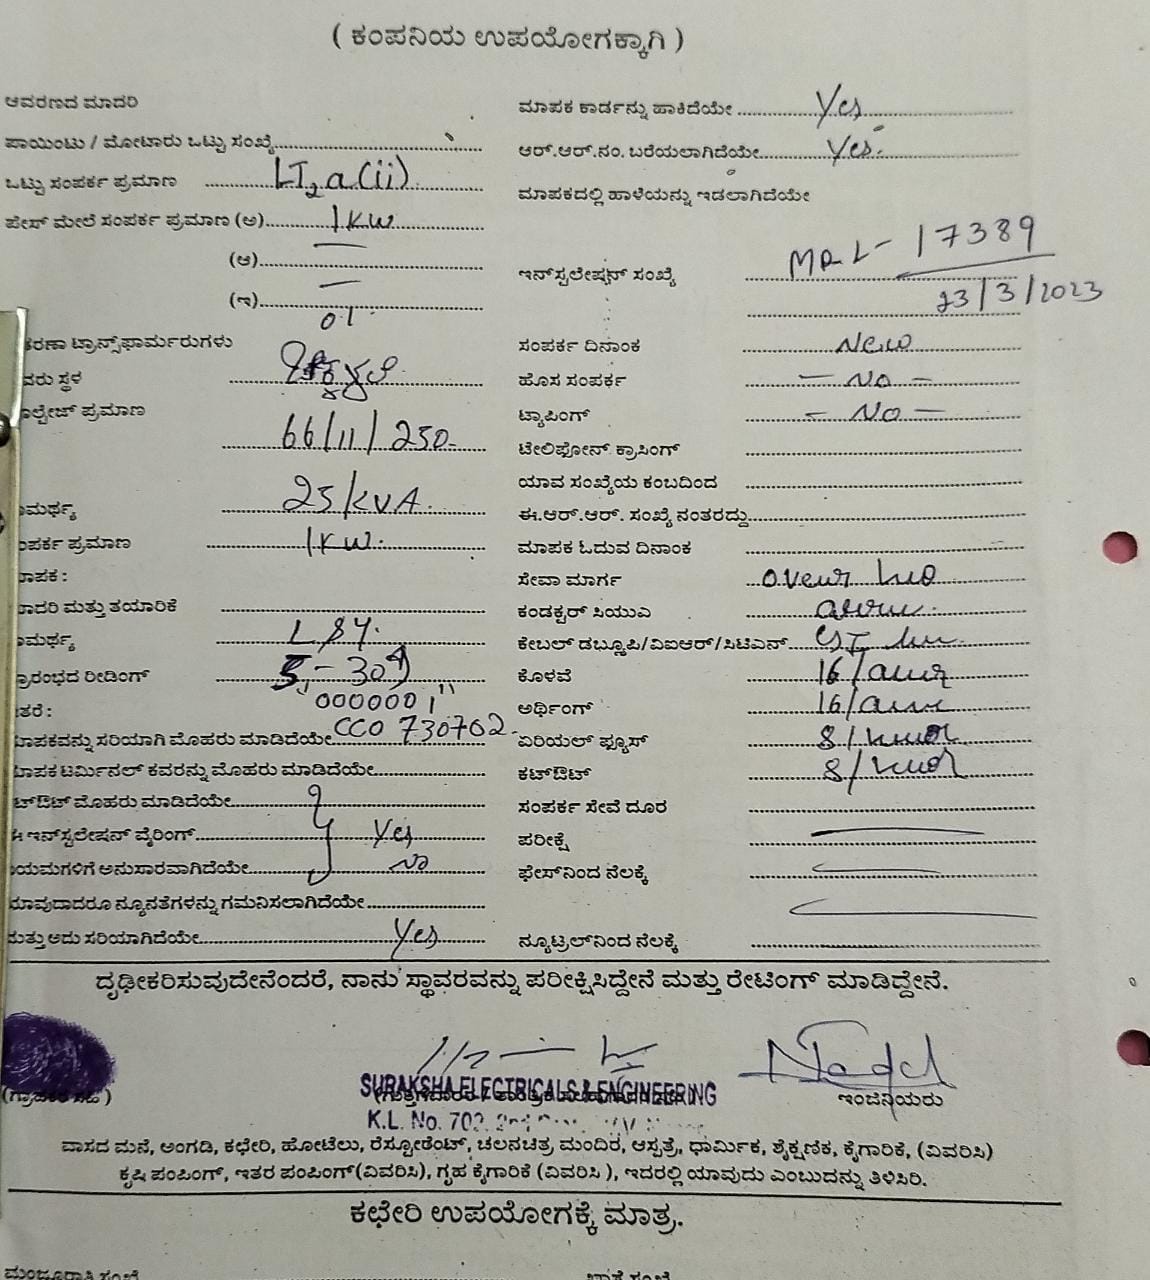 ( ಕಂಪನಿಯ ಉಪಯೋಗಕ್ಕಾಗಿ )
ಆವರಣದ ಮಾದರಿ
ಪಾಯಿಂಟು / ಮೋಟಾರು ಒಟ್ಟು ಸಂಖ್ಯೆ
ಒಟ್ಟು ಸಂಪರ್ಕ ಪ್ರಮಾಣ LT2a(ii)
ಫೇಸ್ ಮೇಲೆ ಸಂಪರ್ಕ ಪ್ರಮಾಣ (ಅ) 1KW
(ಆ)
(ಇ)
01
ಕರಣಾ ಟ್ರಾನ್ಸ್‌ಫಾರ್ಮರುಗಳು
ವರು ಸ್ಥಳ
ಾಲ್ಟೇಜ್ ಪ್ರಮಾಣ
66/11/250
ಾಮರ್ಥ್ಯ 25/KVA
ಂಪರ್ಕ ಪ್ರಮಾಣ 1KW.
ಾಪಕ :
ಾದರಿ ಮತ್ತು ತಯಾರಿಕೆ
ಾಮರ್ಥ್ಯ
್ರಾರಂಭದ ರೀಡಿಂಗ್ 5-30A
ತರೆ : "000000 1"
ಾಪಕವನ್ನು ಸರಿಯಾಗಿ ಮೊಹರು ಮಾಡಿದೆಯೇ CCO 730702
ಾಪಕ ಟರ್ಮಿನಲ್ ಕವರನ್ನು ಮೊಹರು ಮಾಡಿದೆಯೇ
ಟ್‌ಔಟ್ ಮೊಹರು ಮಾಡಿದೆಯೇ
ಈ ಇನ್‌ಸ್ಟಲೇಷನ್ ವೈರಿಂಗ್ Yes
ಯಮಗಳಿಗೆ ಅನುಸಾರವಾಗಿದೆಯೇ No
ಯಾವುದಾದರೂ ನ್ಯೂನತೆಗಳನ್ನು ಗಮನಿಸಲಾಗಿದೆಯೇ
ಮತ್ತು ಅದು ಸರಿಯಾಗಿದೆಯೇ Yes
ಮಾಪಕ ಕಾರ್ಡನ್ನು ಹಾಕಿದೆಯೇ Yes
ಆರ್.ಆರ್.ನಂ. ಬರೆಯಲಾಗಿದೆಯೇ Yes.
ಮಾಪಕದಲ್ಲಿ ಹಾಳೆಯನ್ನು ಇಡಲಾಗಿದೆಯೇ
ಇನ್‌ಸ್ಟಲೇಷನ್ ಸಂಖ್ಯೆ MRL- 17389
23/3/2023
ಸಂಪರ್ಕ ದಿನಾಂಕ New
ಹೊಸ ಸಂಪರ್ಕ - NO -
ಟ್ಯಾಪಿಂಗ್ - NO -
ಟೇಲಿಫೋನ್ ಕ್ರಾಸಿಂಗ್
ಯಾವ ಸಂಖ್ಯೆಯ ಕಂಬದಿಂದ
ಈ.ಆರ್.ಆರ್. ಸಂಖ್ಯೆ ನಂತರದ್ದು
ಮಾಪಕ ಓದುವ ದಿನಾಂಕ
ಸೇವಾ ಮಾರ್ಗ
ಕಂಡಕ್ಟರ್ ಸಿಯುವಿ
ಕೇಬಲ್ ಡಬ್ಲ್ಯೂಪಿ/ವಿಐಆರ್/ಸಿಟಿಎನ್
ಕೊಳವೆ 16/
ಅರ್ಥಿಂಗ್ 16/
ಏರಿಯಲ್ ಫ್ಯೂಸ್ 8/
ಕಟ್‌ಔಟ್ 8/
ಸಂಪರ್ಕ ಸೇವೆ ದೂರ
ಪರೀಕ್ಷೆ
ಫೇಸ್‌ನಿಂದ ನೆಲಕ್ಕೆ
ನ್ಯೂಟ್ರಲ್‌ನಿಂದ ನೆಲಕ್ಕೆ
ದೃಢೀಕರಿಸುವುದೇನೆಂದರೆ, ನಾನು ಸ್ಥಾವರವನ್ನು ಪರೀಕ್ಷಿಸಿದ್ದೇನೆ ಮತ್ತು ರೇಟಿಂಗ್ ಮಾಡಿದ್ದೇನೆ.
SURAKSHA ELECTRICALS & ENGINEERING
K.L. No. 702,
ಇಂಜಿನಿಯರು
ವಾಸದ ಮನೆ, ಅಂಗಡಿ, ಕಛೇರಿ, ಹೋಟೆಲು, ರೆಸ್ಟೋರೆಂಟ್, ಚಲನಚಿತ್ರ ಮಂದಿರ, ಆಸ್ಪತ್ರೆ, ಧಾರ್ಮಿಕ, ಶೈಕ್ಷಣಿಕ, ಕೈಗಾರಿಕೆ, (ವಿವರಿಸಿ)
ಕೃಷಿ ಪಂಪಿಂಗ್, ಇತರ ಪಂಪಿಂಗ್(ವಿವರಿಸಿ), ಗೃಹ ಕೈಗಾರಿಕೆ (ವಿವರಿಸಿ ), ಇದರಲ್ಲಿ ಯಾವುದು ಎಂಬುದನ್ನು ತಿಳಿಸಿರಿ.
ಕಛೇರಿ ಉಪಯೋಗಕ್ಕೆ ಮಾತ್ರ.